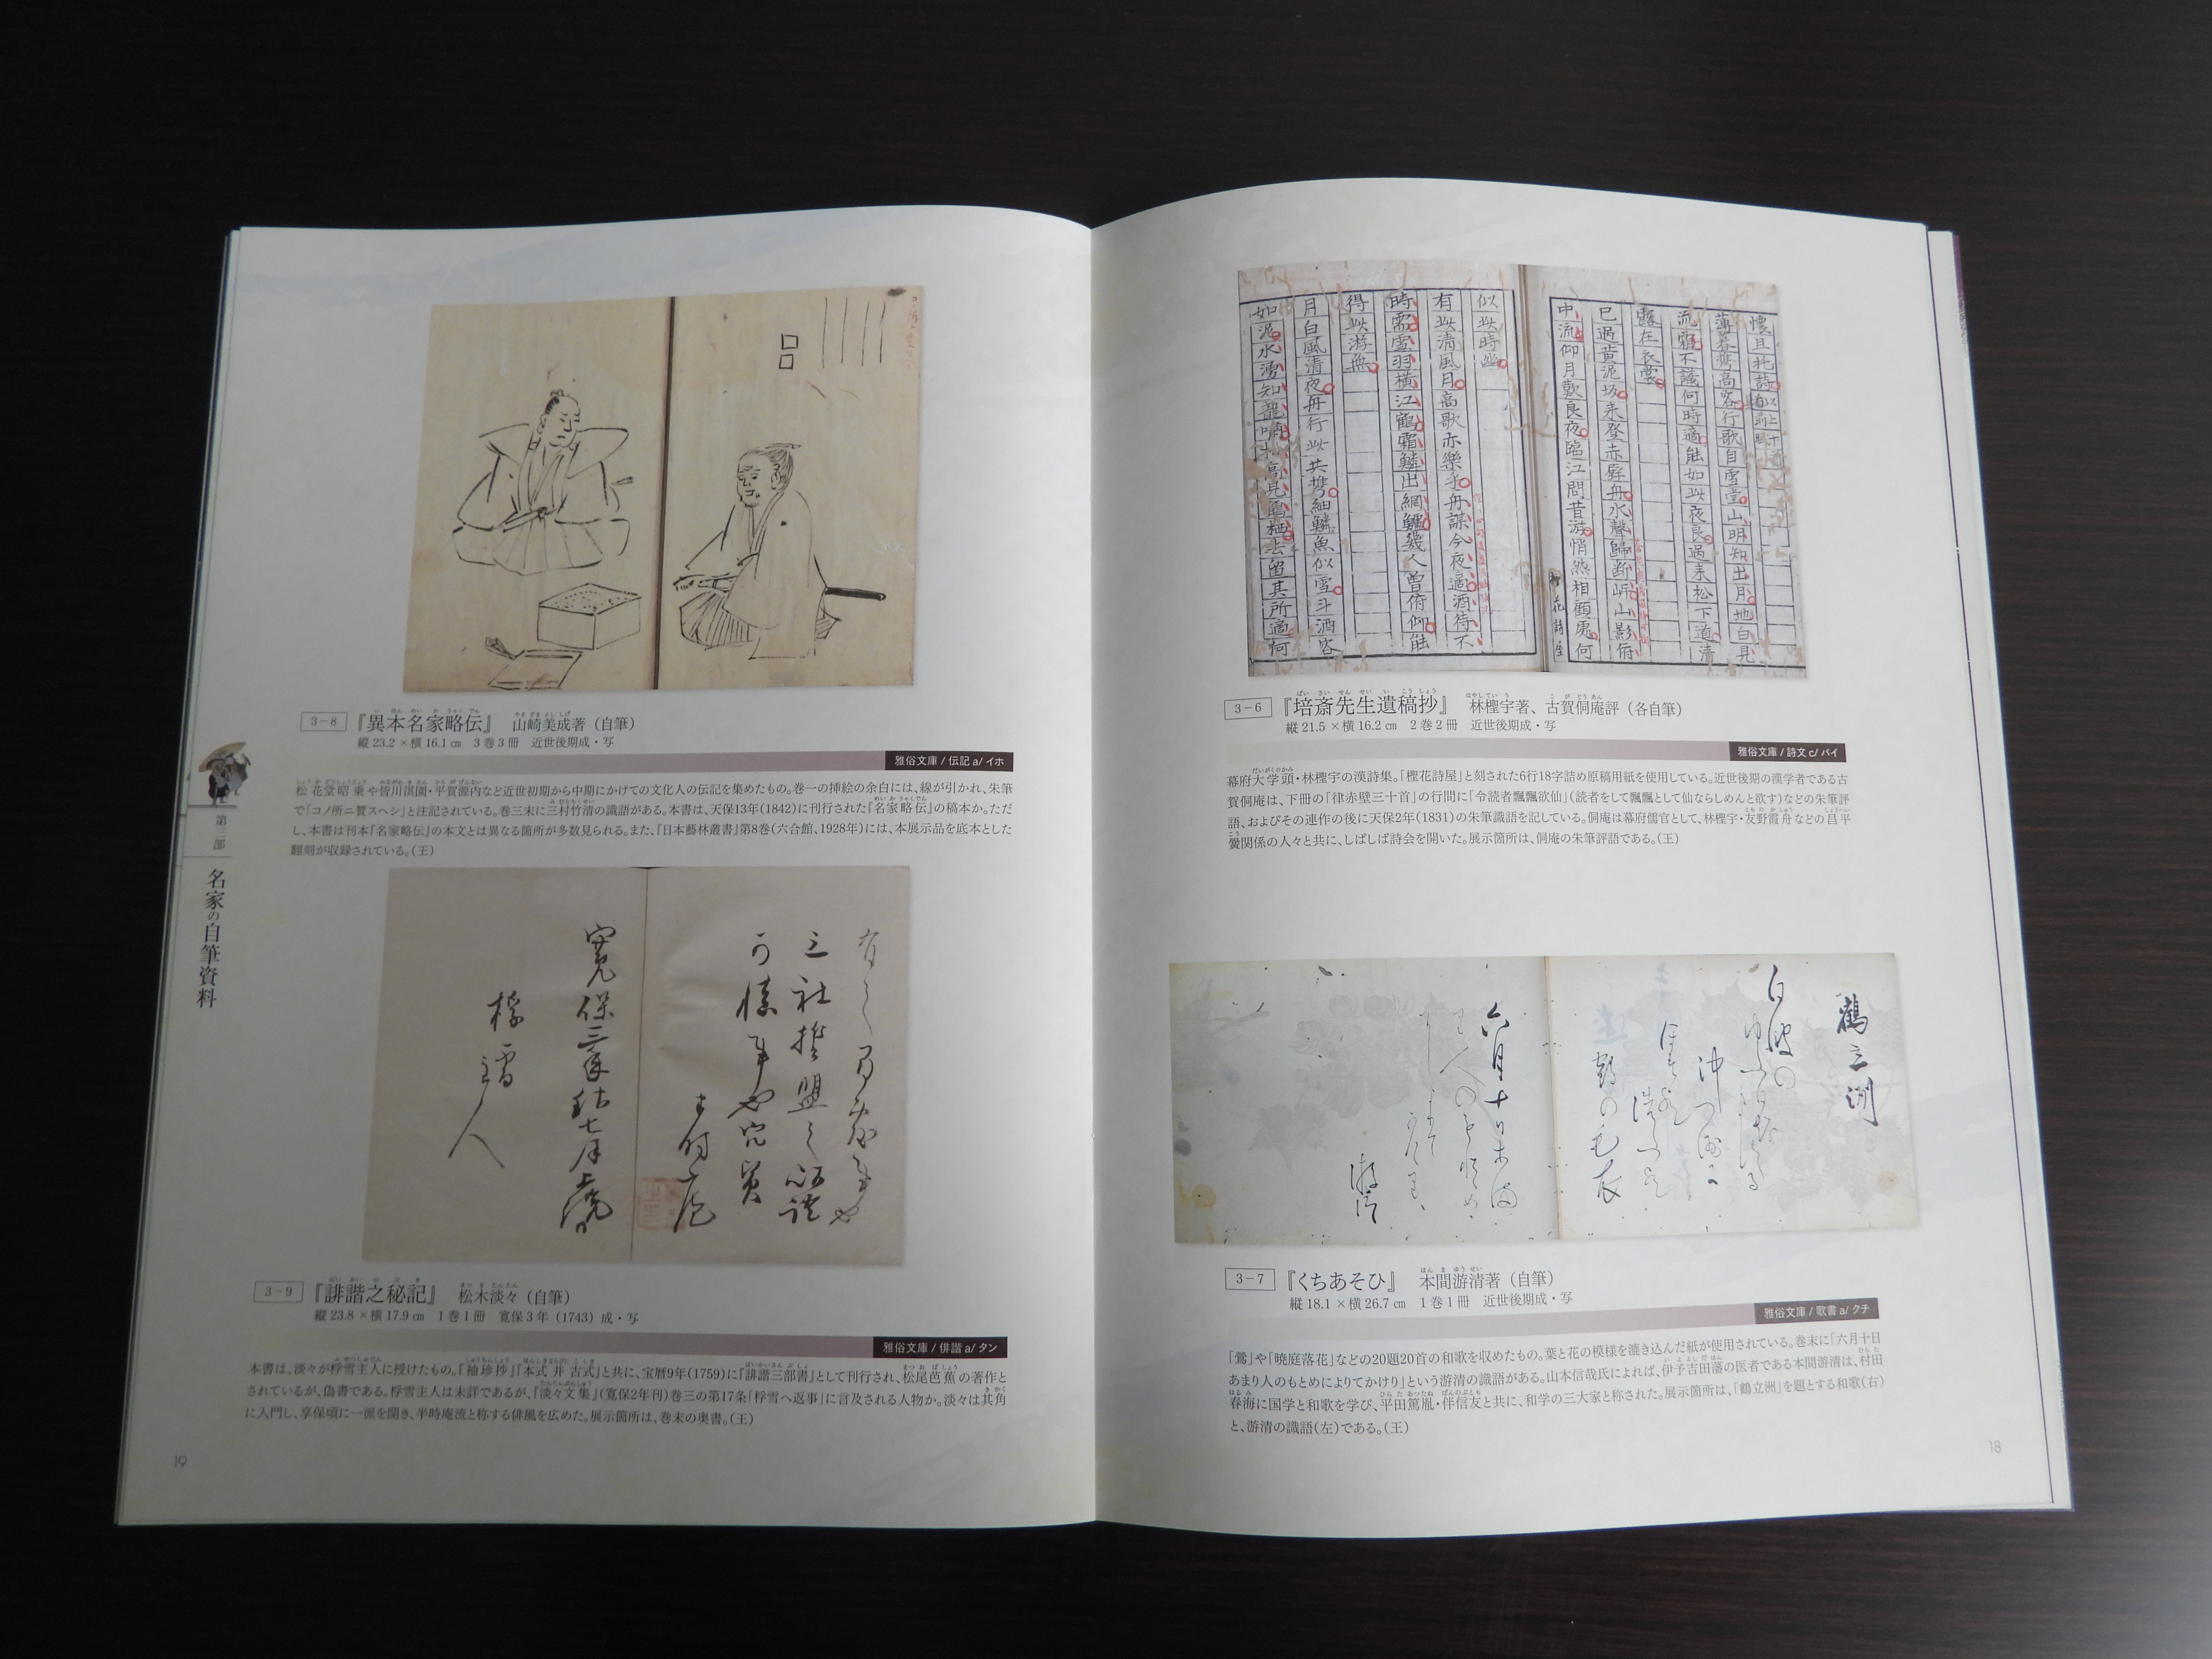 懐且托詩
薄暮携高客行歌自雪堂山明知出月地白見
流霜不識何時適能如此夜良過来松下道清
露在衣裳
已過黄泥坂来登赤壁舟水聲歸断岍山影俯
中流仰月歎良夜臨江問昔游悄然相顧處何
似此時幽
有此清風月高歌亦樂乎舟謀今夜適酒待不
時需雪羽横江鶴霜鱗出網鱸幾人曽俯仰能
得此游無
月白風清夜舟行此共携細鱗魚似雪斗酒客
如泥水湧知龍
3-6
『培斎先生遺稿抄』 林檉宇著、古賀侗庵評（各自筆）
縦 21.5 × 横 16.2 ㎝ 2 巻 2 冊 近世後期成・写
雅俗文庫 / 詩文 c/ バイ
幕府大学頭・林檉宇の漢詩集。「檉花詩屋」と刻された6行18字詰め原稿用紙を使用している。近世後期の漢学者である古
賀侗庵は、下冊の「律赤壁三十首」の行間に「令読者飄飄欲仙」（読者をして飄飄として仙ならしめんと欲す）などの朱筆評
語、およびその連作の後に天保2年（1831）の朱筆識語を記している。侗庵は幕府儒官として、林檉宇・友野霞舟などの昌平
黌関係の人々と共に、しばしば詩会を開いた。展示箇所は、侗庵の朱筆評語である。（王）
鶴立洲
白波の
沖つ洲に
鶴の毛衣
六月十日あまり
人のもとめ
游清
3-7
『くちあそひ』 本間游清著（自筆）
縦 18.1 × 横 26.7 ㎝ 1 巻 1 冊 近世後期成・写
雅俗文庫 / 歌書 a/ クチ
「鶯」や「暁庭落花」などの20題20首の和歌を収めたもの。葉と花の模様を漉き込んだ紙が使用されている。巻末に「六月十日
あまり人のもとめによりてかけり」という游清の識語がある。山本信哉氏によれば、伊予吉田藩の医者である本間游清は、村田
春海に国学と和歌を学び、平田篤胤・伴信友と共に、和学の三大家と称された。展示箇所は、「鶴立洲」を題とする和歌（右）
と、游清の識語（左）である。（王）
18
3-8
『異本名家略伝』 山崎美成著（自筆）
縦 23.2 × 横 16.1 ㎝ 3 巻 3 冊 近世後期成・写
雅俗文庫 / 伝記 a/ イホ
松花堂昭乗や皆川淇園・平賀源内など近世初期から中期にかけての文化人の伝記を集めたもの。巻一の挿絵の余白には、線が引かれ、朱筆
で「コノ所ニ賛スヘシ」と注記されている。巻三末に三村竹清の識語がある。本書は、天保13年（1842）に刊行された『名家略伝』の稿本か。ただ
し、本書は刊本『名家略伝』の本文とは異なる箇所が多数見られる。また、『日本藝林叢書』第8巻（六合館、1928年）には、本展示品を底本とした
翻刻が収録されている。（王）
三社誓盟之
可慎事也
半時庵
寛保三
七月
桴雪
主人
3-9
『誹諧之秘記』 松木淡々（自筆）
縦 23.8 × 横 17.9 ㎝ 1 巻 1 冊 寛保 3 年（1743）成・写
雅俗文庫 / 俳諧 a/ タン
本書は、淡々が桴雪主人に授けたもの。「袖珍抄」「本式并古式」と共に、宝暦9年（1759）に『誹諧三部書』として刊行され、松尾芭蕉の著作と
されているが、偽書である。桴雪主人は未詳であるが、『淡々文集』（寛保2年刊）巻三の第17条「桴雪へ返事」に言及される人物か。淡々は其角
に入門し、享保頃に一派を開き、半時庵流と称する俳風を広めた。展示箇所は、巻末の奥書。（王）
第三部
名家の自筆資料
19